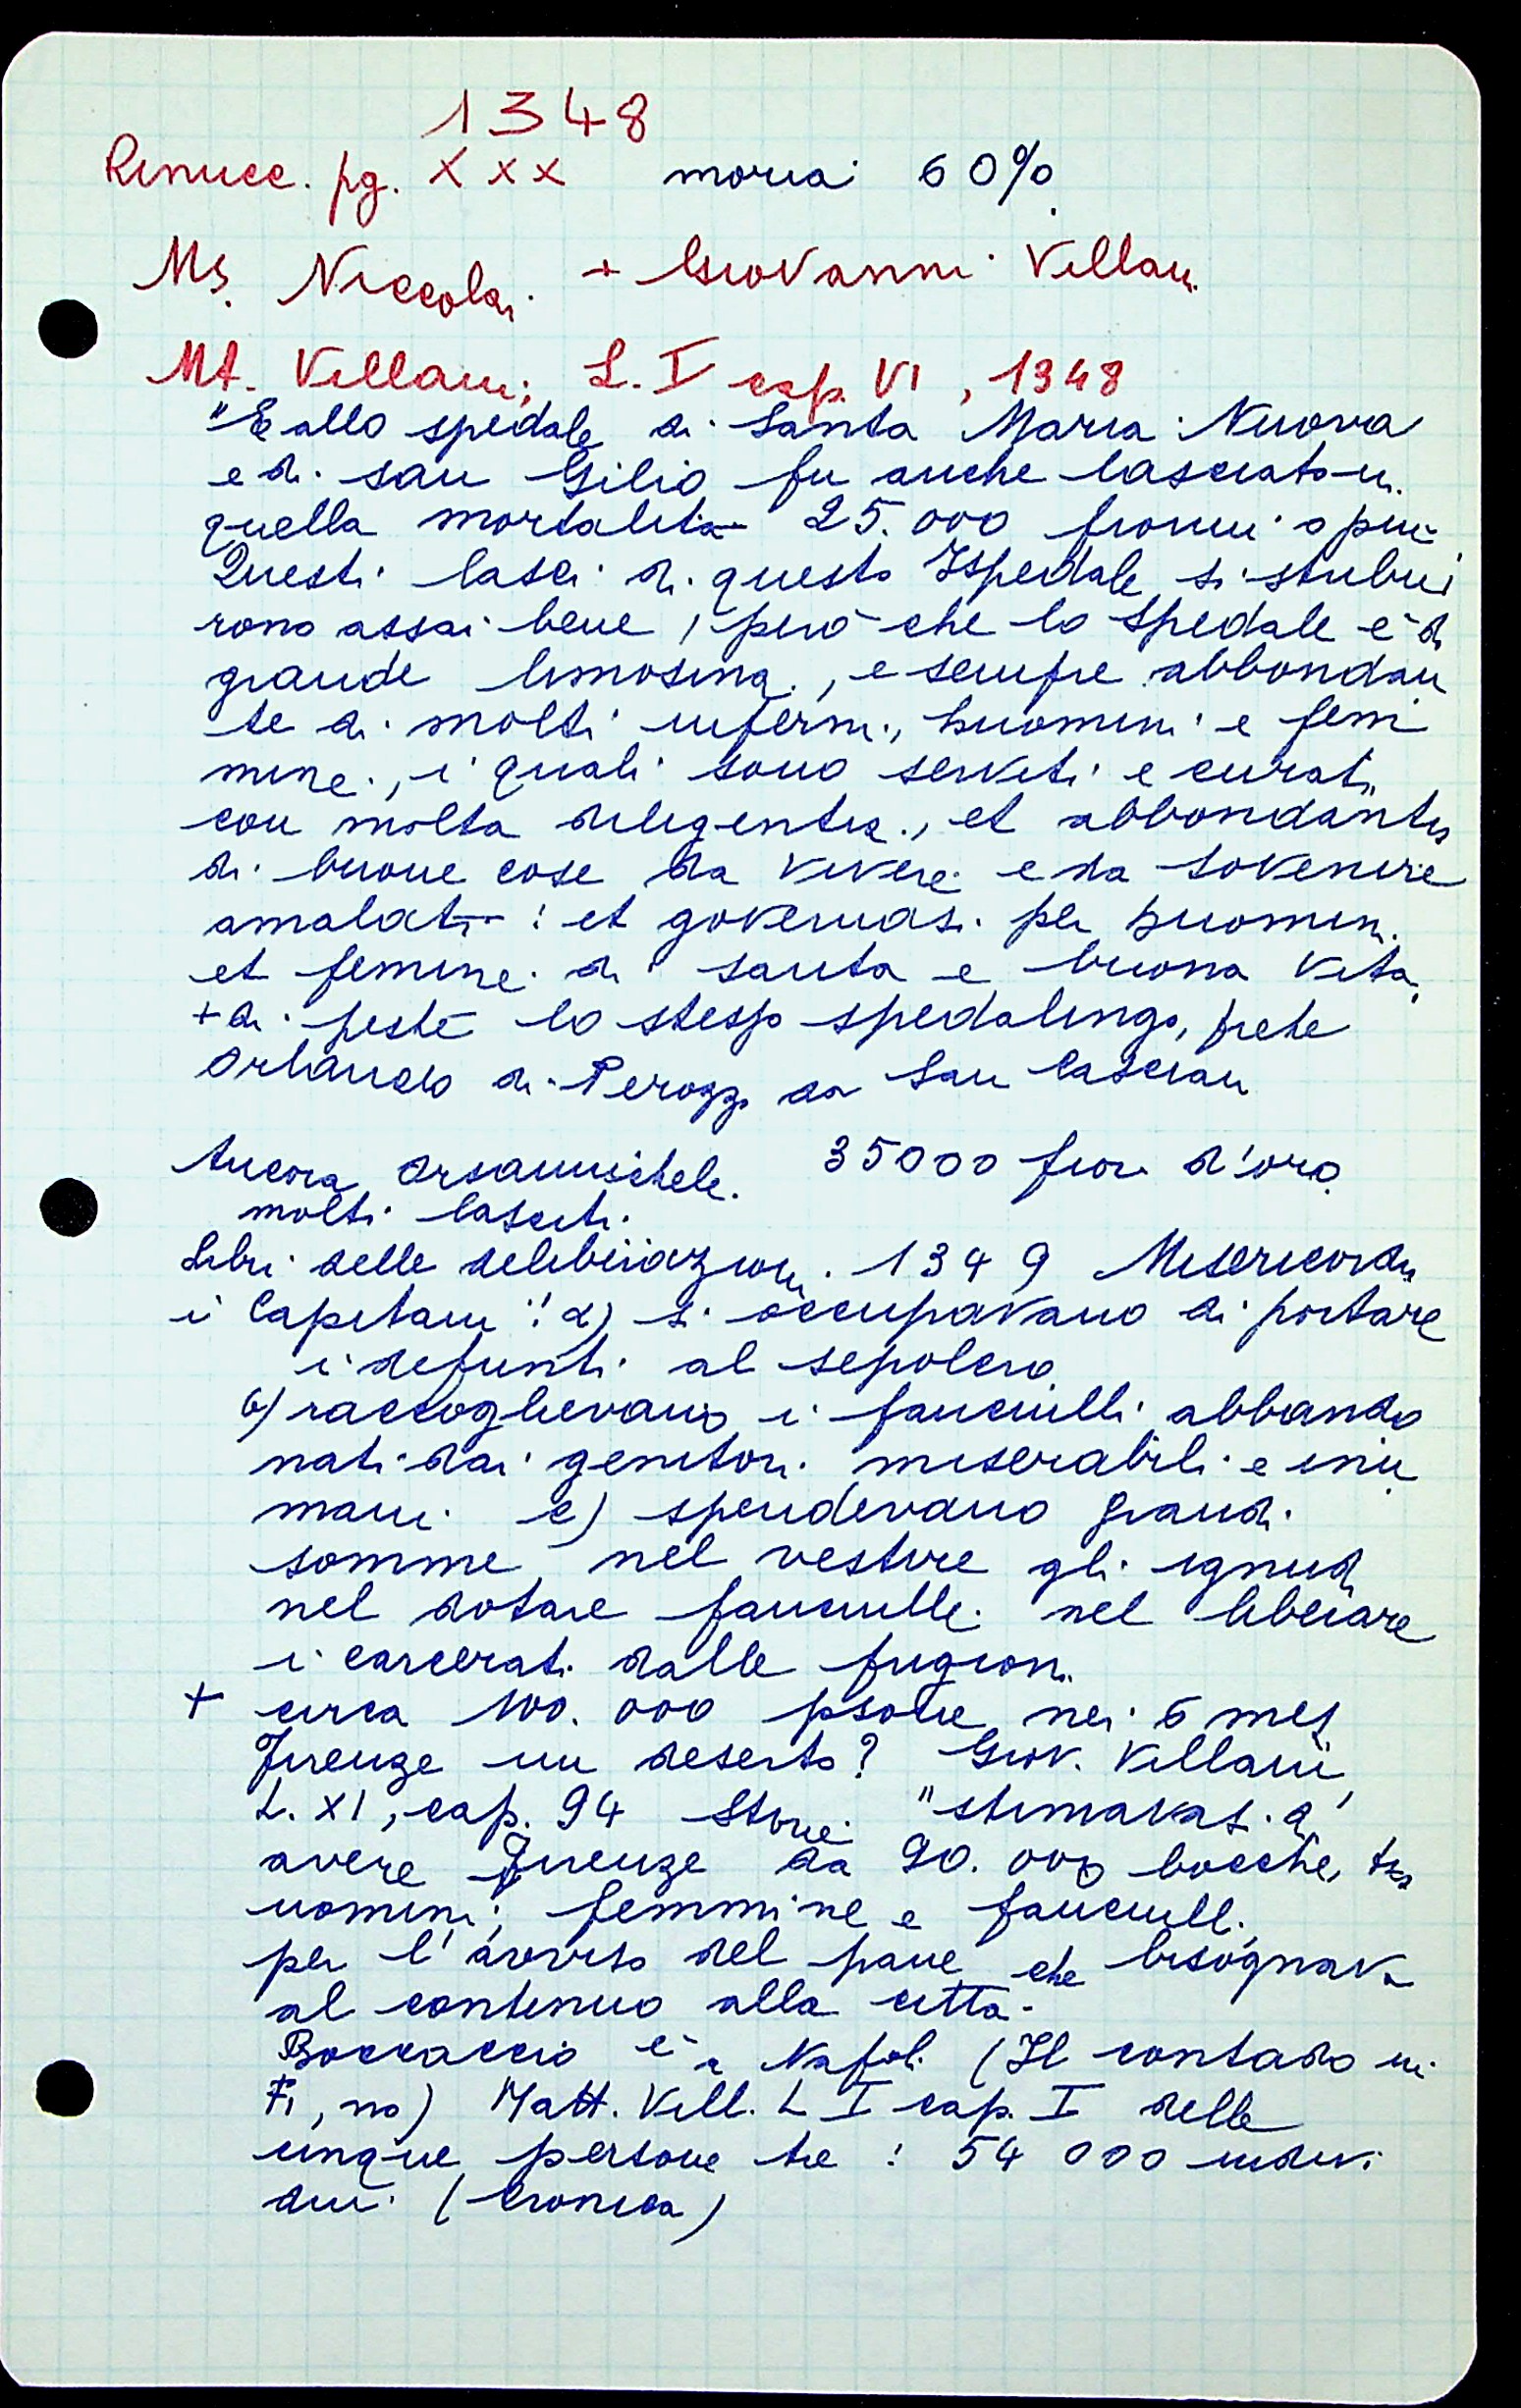 1348
Rinucc. pg. XXX moria 60%
Ms. Niccolai + Giovanni Villani
Mt. Villani; L. I cap. VI, 1348
"E allo spedale di Santa Maria Nuova
e di san Gilio fu anche lasciato in
quella mortalità 25.000 fiorini o più
Questi lasci di questo Ispedale si stribui
rono assai bene, però che lo spedale è di
grande limosina, e sempre abbondan
te di molti infermi, huomini e fem
mine, i quali sono serviti e curati
con molta diligentia, et abbondantia
di buone cose da vivere e da sovenire
amalati: et governasi per huomini
et femine di santa e buona vita,
+ di peste lo stesso spedalingo, prete
Orlando di Perozzo da San Cascian
Ancora Orsanmichele. 35000 fior d'oro
molti lasciti.
Libri delle deliberazioni. 1349 Misericordia
i Capitani: a) si occupavano di portare
i defunti al sepolcro
b) raccoglievano i fanciulli abbando
nati dai genitori miserabili e inu
mani c) spendevano grandi
somme nel vestire gli ignudi
nel dotare fanciulle nel liberare
i carcerati dalle prigioni
+ circa 100.000 psone nei 5 mesi
Firenze un deserto? Giov. Villani,
L. XI, cap. 94 Storie "stimavasi d'
avere Firenze da 90.000 bocche, tra
uomini, femmine e fanciulli
per l'avviso del pane che bisognava
al continuo alla città.
Boccaccio è a Napoli (Il contado in
Fi, no) Matt. Vill. L I cap. I delle
cinque persone tre: 54 000 indivi
dui (Cronica)